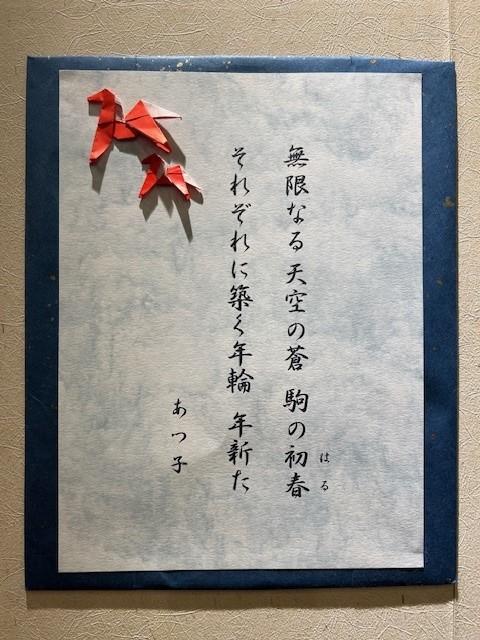 無限なる 天空の蒼 駒の初春
はる
それぞれに築く年輪 年新た
あつ子